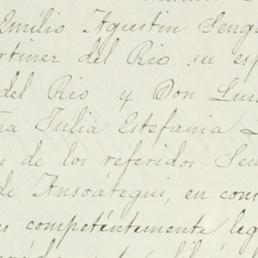 Emilio Agustin Seng
rtinez del Rio su esp
del Rio y Don Luis
ña Julia Estefania
s de los referidos Señ
de Ansoátegui, en com
es competentemente leg